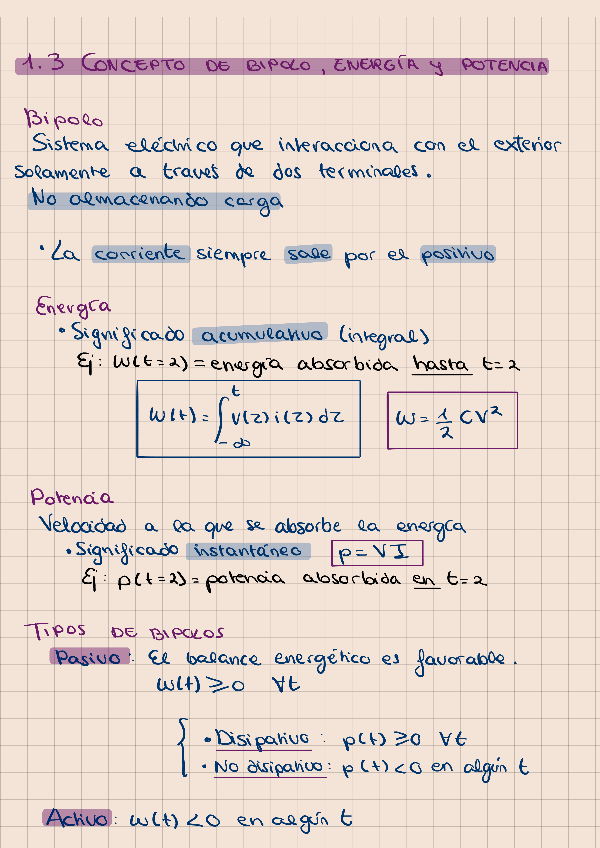 1.3 CONCEPTO DE BIPOLO, ENERGÍA Y POTENCIA
Bipolo
Sistema eléctrico que interacciona con el exterior
solamente a través de dos terminales.
No almacenando carga
• La corriente siempre sale por el positivo
Energía
• Significado acumulativo (integral)
Ej: W(t=2) = energía absorbida hasta t=2
W(t) = ∫_{-∞}^{t} V(τ) i(τ) dτ W = 1/2 CV²
Potencia
Velocidad a la que se absorbe la energía
• Significado instantáneo p = VI
Ej: p(t=2) = potencia absorbida en t=2
TIPOS DE BIPOLOS
Pasivo: El balance energético es favorable.
W(t) ≥ 0 ∀t
• Disipativo: p(t) ≥ 0 ∀t
• No disipativo: p(t) < 0 en algún t
Activo: W(t) < 0 en algún t